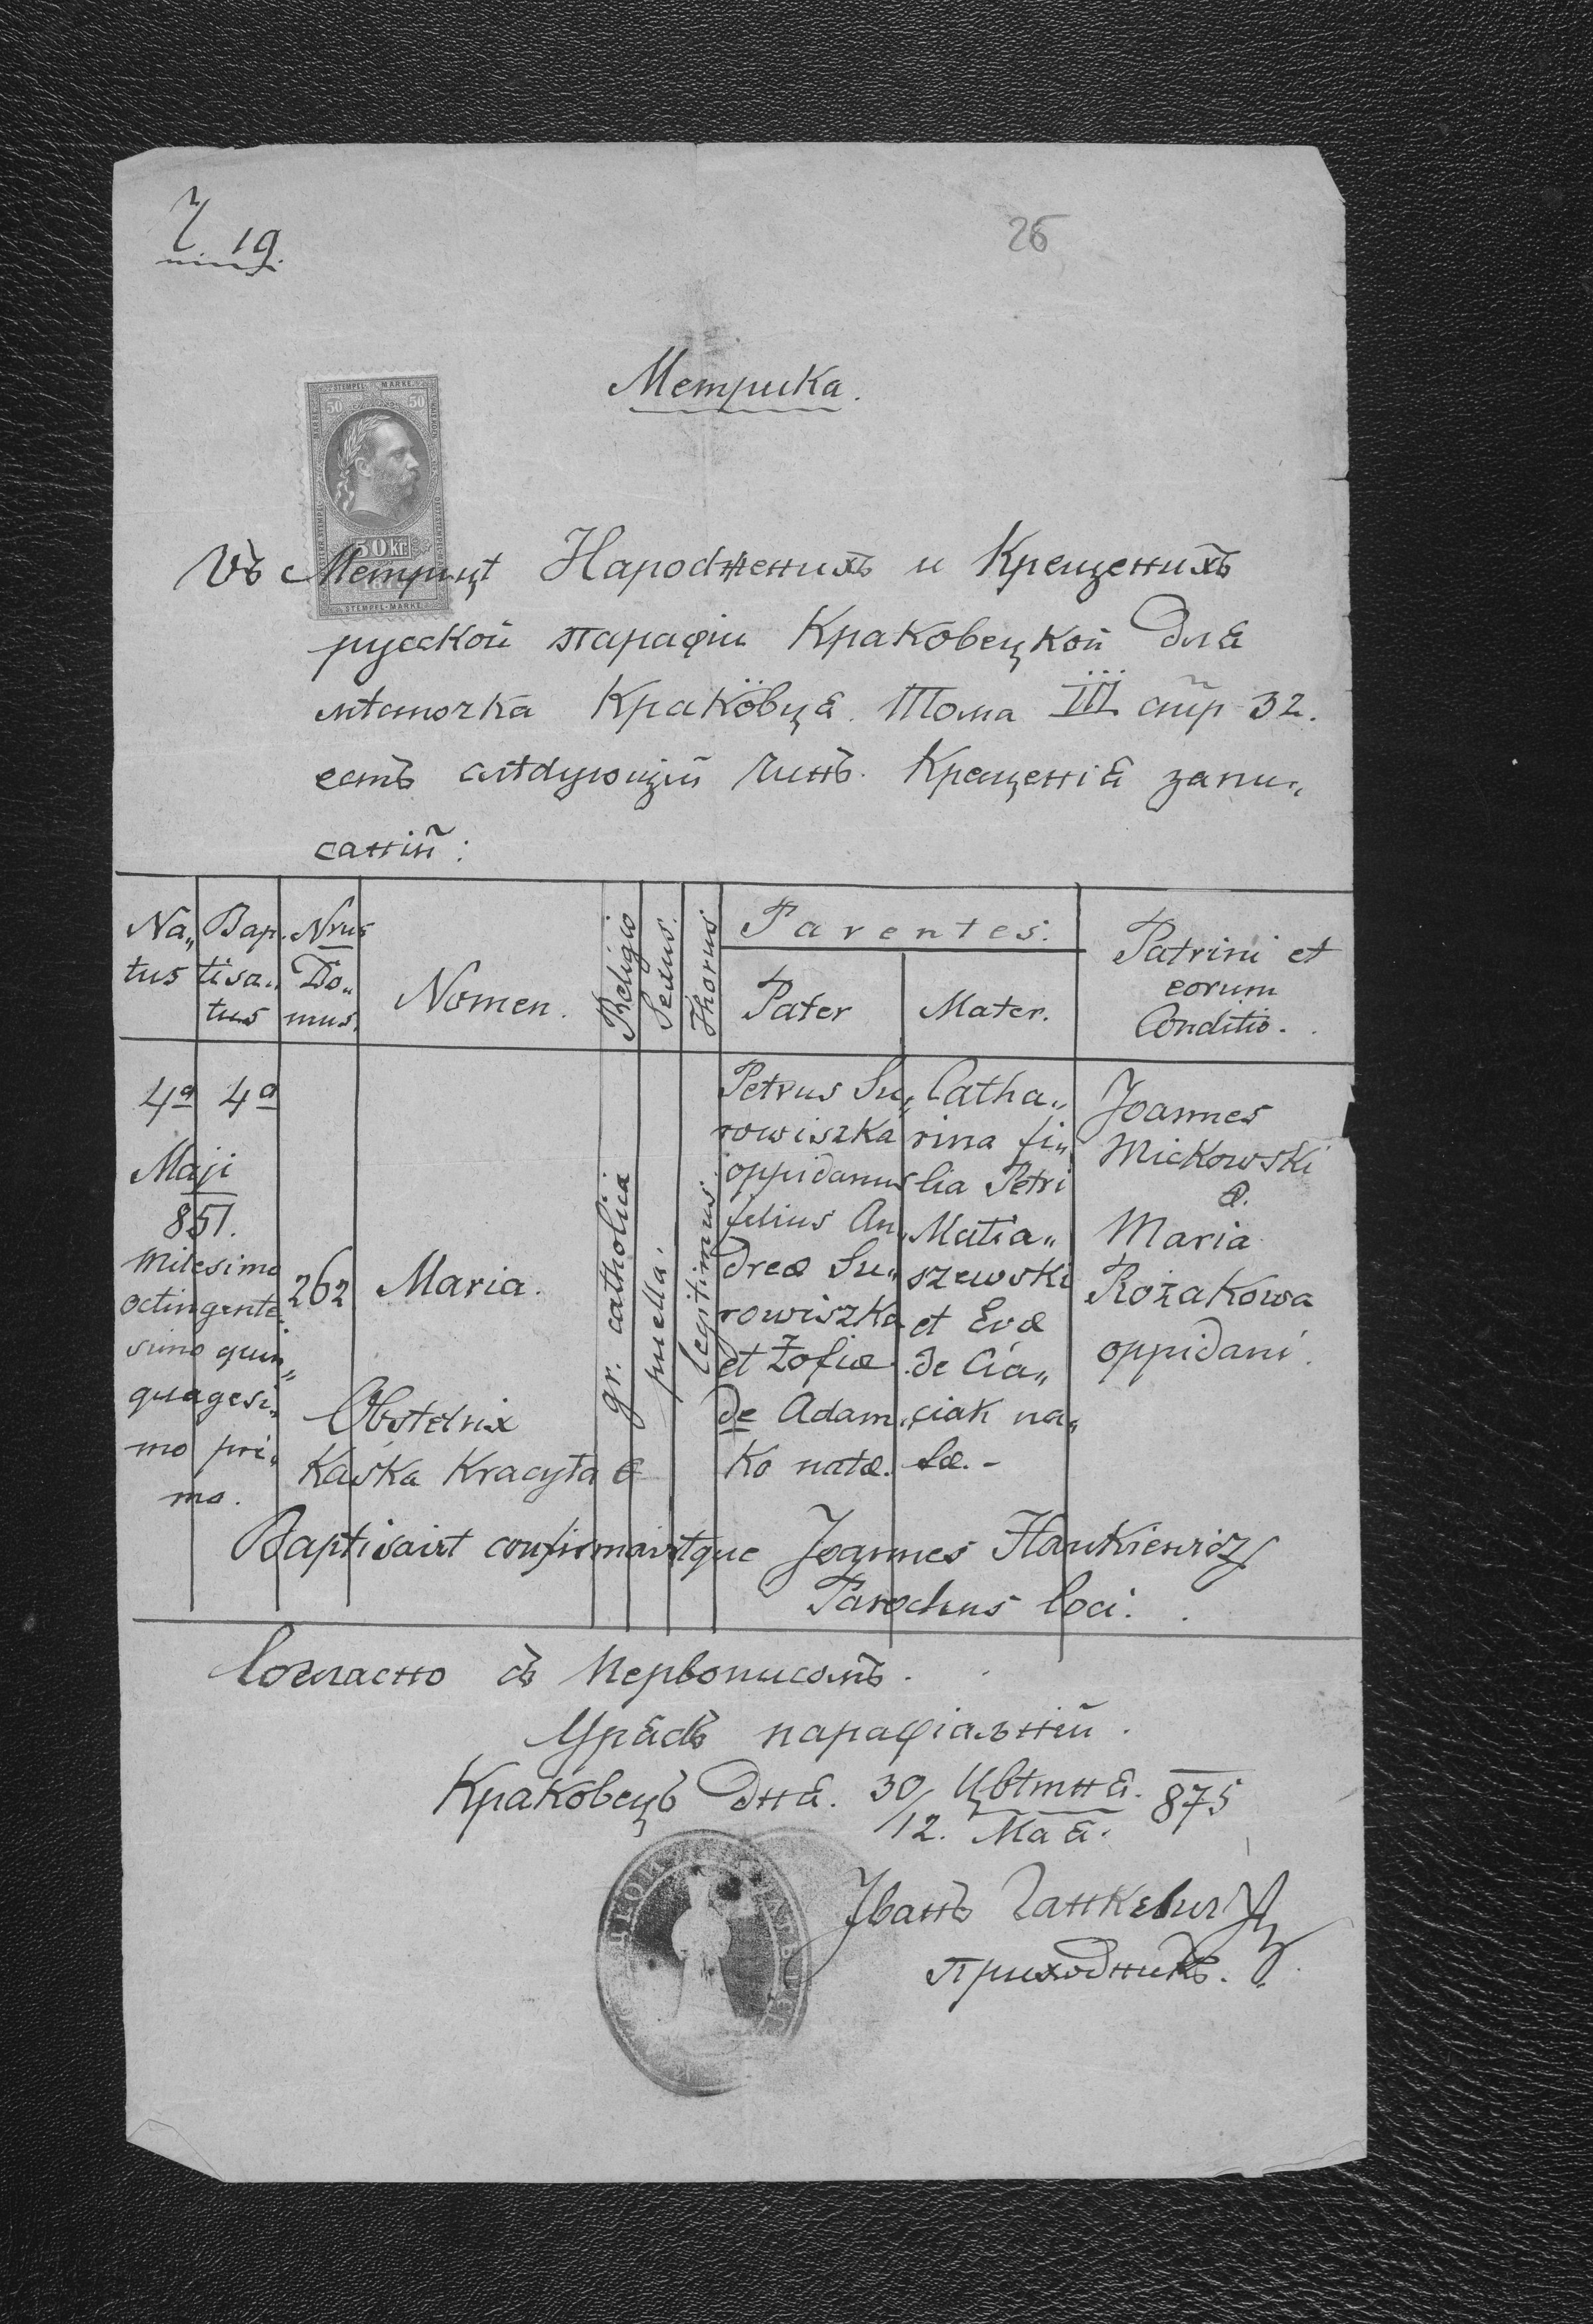 Ч. 19.
26
Метрика.
STEMPEL MARKE
50 50
50 kr
STEMPEL-MARKE
Въ Метрицѣ Народженихъ и Крещенихъ
русской парафіи Краковецкой для
мѣсточка Краковця. Тома III стр 32.
есть слѣдующій чинъ. Крещенія запи„
саній:
Na„ Bap. Nrus
tus tisa„ Do„
tus mus.
Nomen.
Religio
Sexus.
Thorus
Parentes.
Pater
Mater.
Patrini et
eorum
Conditio.
4a 4a
Maji
851.
Milesimo
octingente„
simo quin„
quagesi„
mo pri„
mo.
262
Maria.
Obstetrix
Kaśka Kracyła
gr. catholica
puella.
legitimus.
Petrus Su„
rowiszka
oppidanus
filius An„
dreæ Su„
rowiszka
et Zofiæ
de Adam„
ko natæ.
Catha„
rina fi„
lia Petri
Matia„
szewski
et Evæ
de Cia„
ciak na„
tæ.-
Joannes
Mickowski
&.
Maria
Rożakowa
oppidani.
Baptisavit confirmavitque Joannes Hankiewicz
Parochus loci.
Согласно съ Первописомъ.
Урядъ парафіальній.
Краковець дня. 30/12. Цвѣтня. Мая. 875
Іванъ Ганкевичъ
приходникъ.